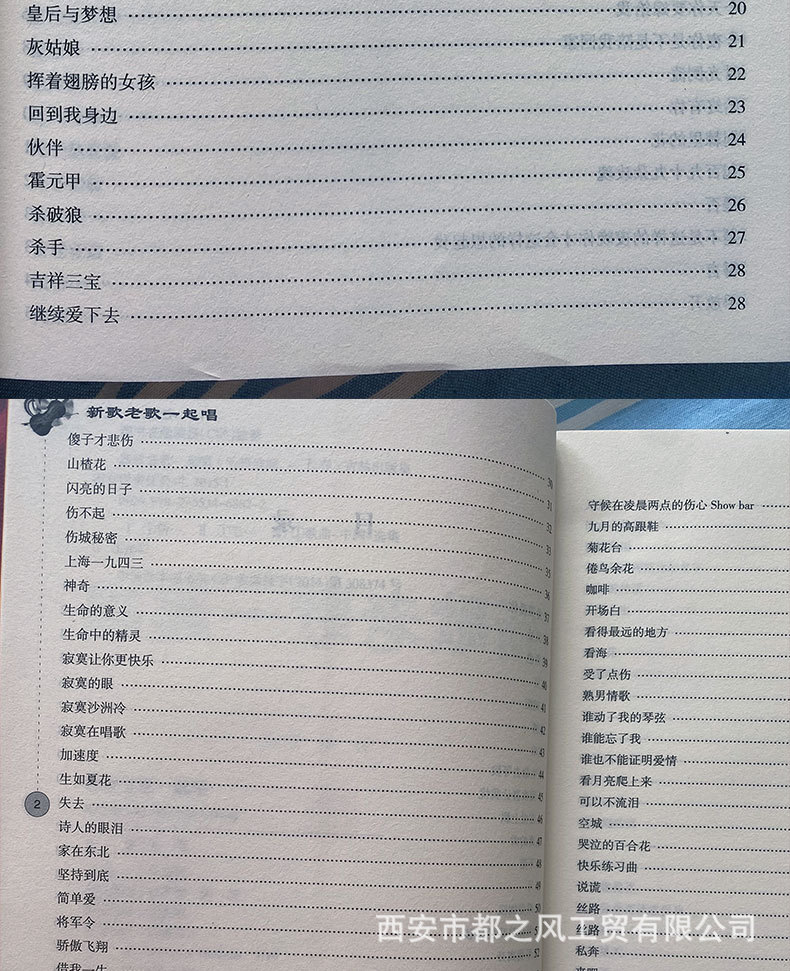 皇后与梦想 20
灰姑娘 21
挥着翅膀的女孩 22
回到我身边 23
伙伴 24
霍元甲 25
杀破狼 26
杀手 27
吉祥三宝 28
继续爱下去 28
新歌老歌一起唱
傻子才悲伤 30
山楂花 31
闪亮的日子 32
伤不起 33
伤城秘密 35
上海一九四三 36
神奇 37
生命的意义 38
生命中的精灵 39
寂寞让你更快乐 40
寂寞的眼 41
寂寞沙洲冷 42
寂寞在唱歌 43
加速度 44
生如夏花 45
失去 46
诗人的眼泪 47
家在东北 48
坚持到底 49
简单爱 50
将军令
骄傲飞翔 52
借我一生
2
守候在凌晨两点的伤心 Show bar
九月的高跟鞋
菊花台
倦鸟余花
咖啡
开场白
看得最远的地方
看海
受了点伤
熟男情歌
谁动了我的琴弦
谁能忘了我
谁也不能证明爱情
看月亮爬上来
可以不流泪
空城
哭泣的百合花
快乐练习曲
说谎
丝路
丝路
私奔
西安市都之风工贸有限公司